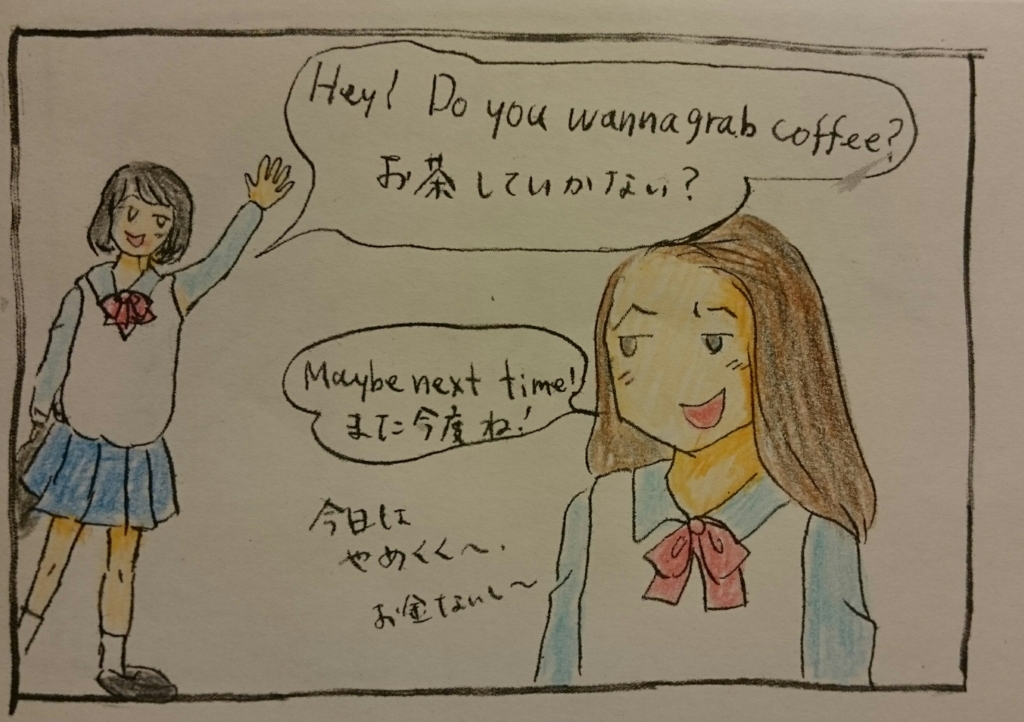 Hey! Do you wanna grab coffee?
お茶していかない?
Maybe next time!
また今度ね!
今日は
やめくく〜.
お金ないし〜